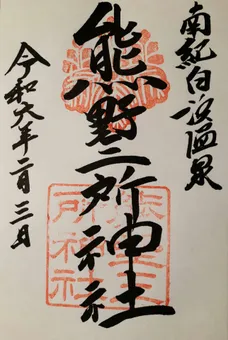 南紀白浜温泉
熊野三所神社
令和六年二月三日
熊野三
所神社